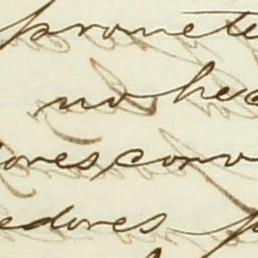 promete
no hec
dores convo
edores